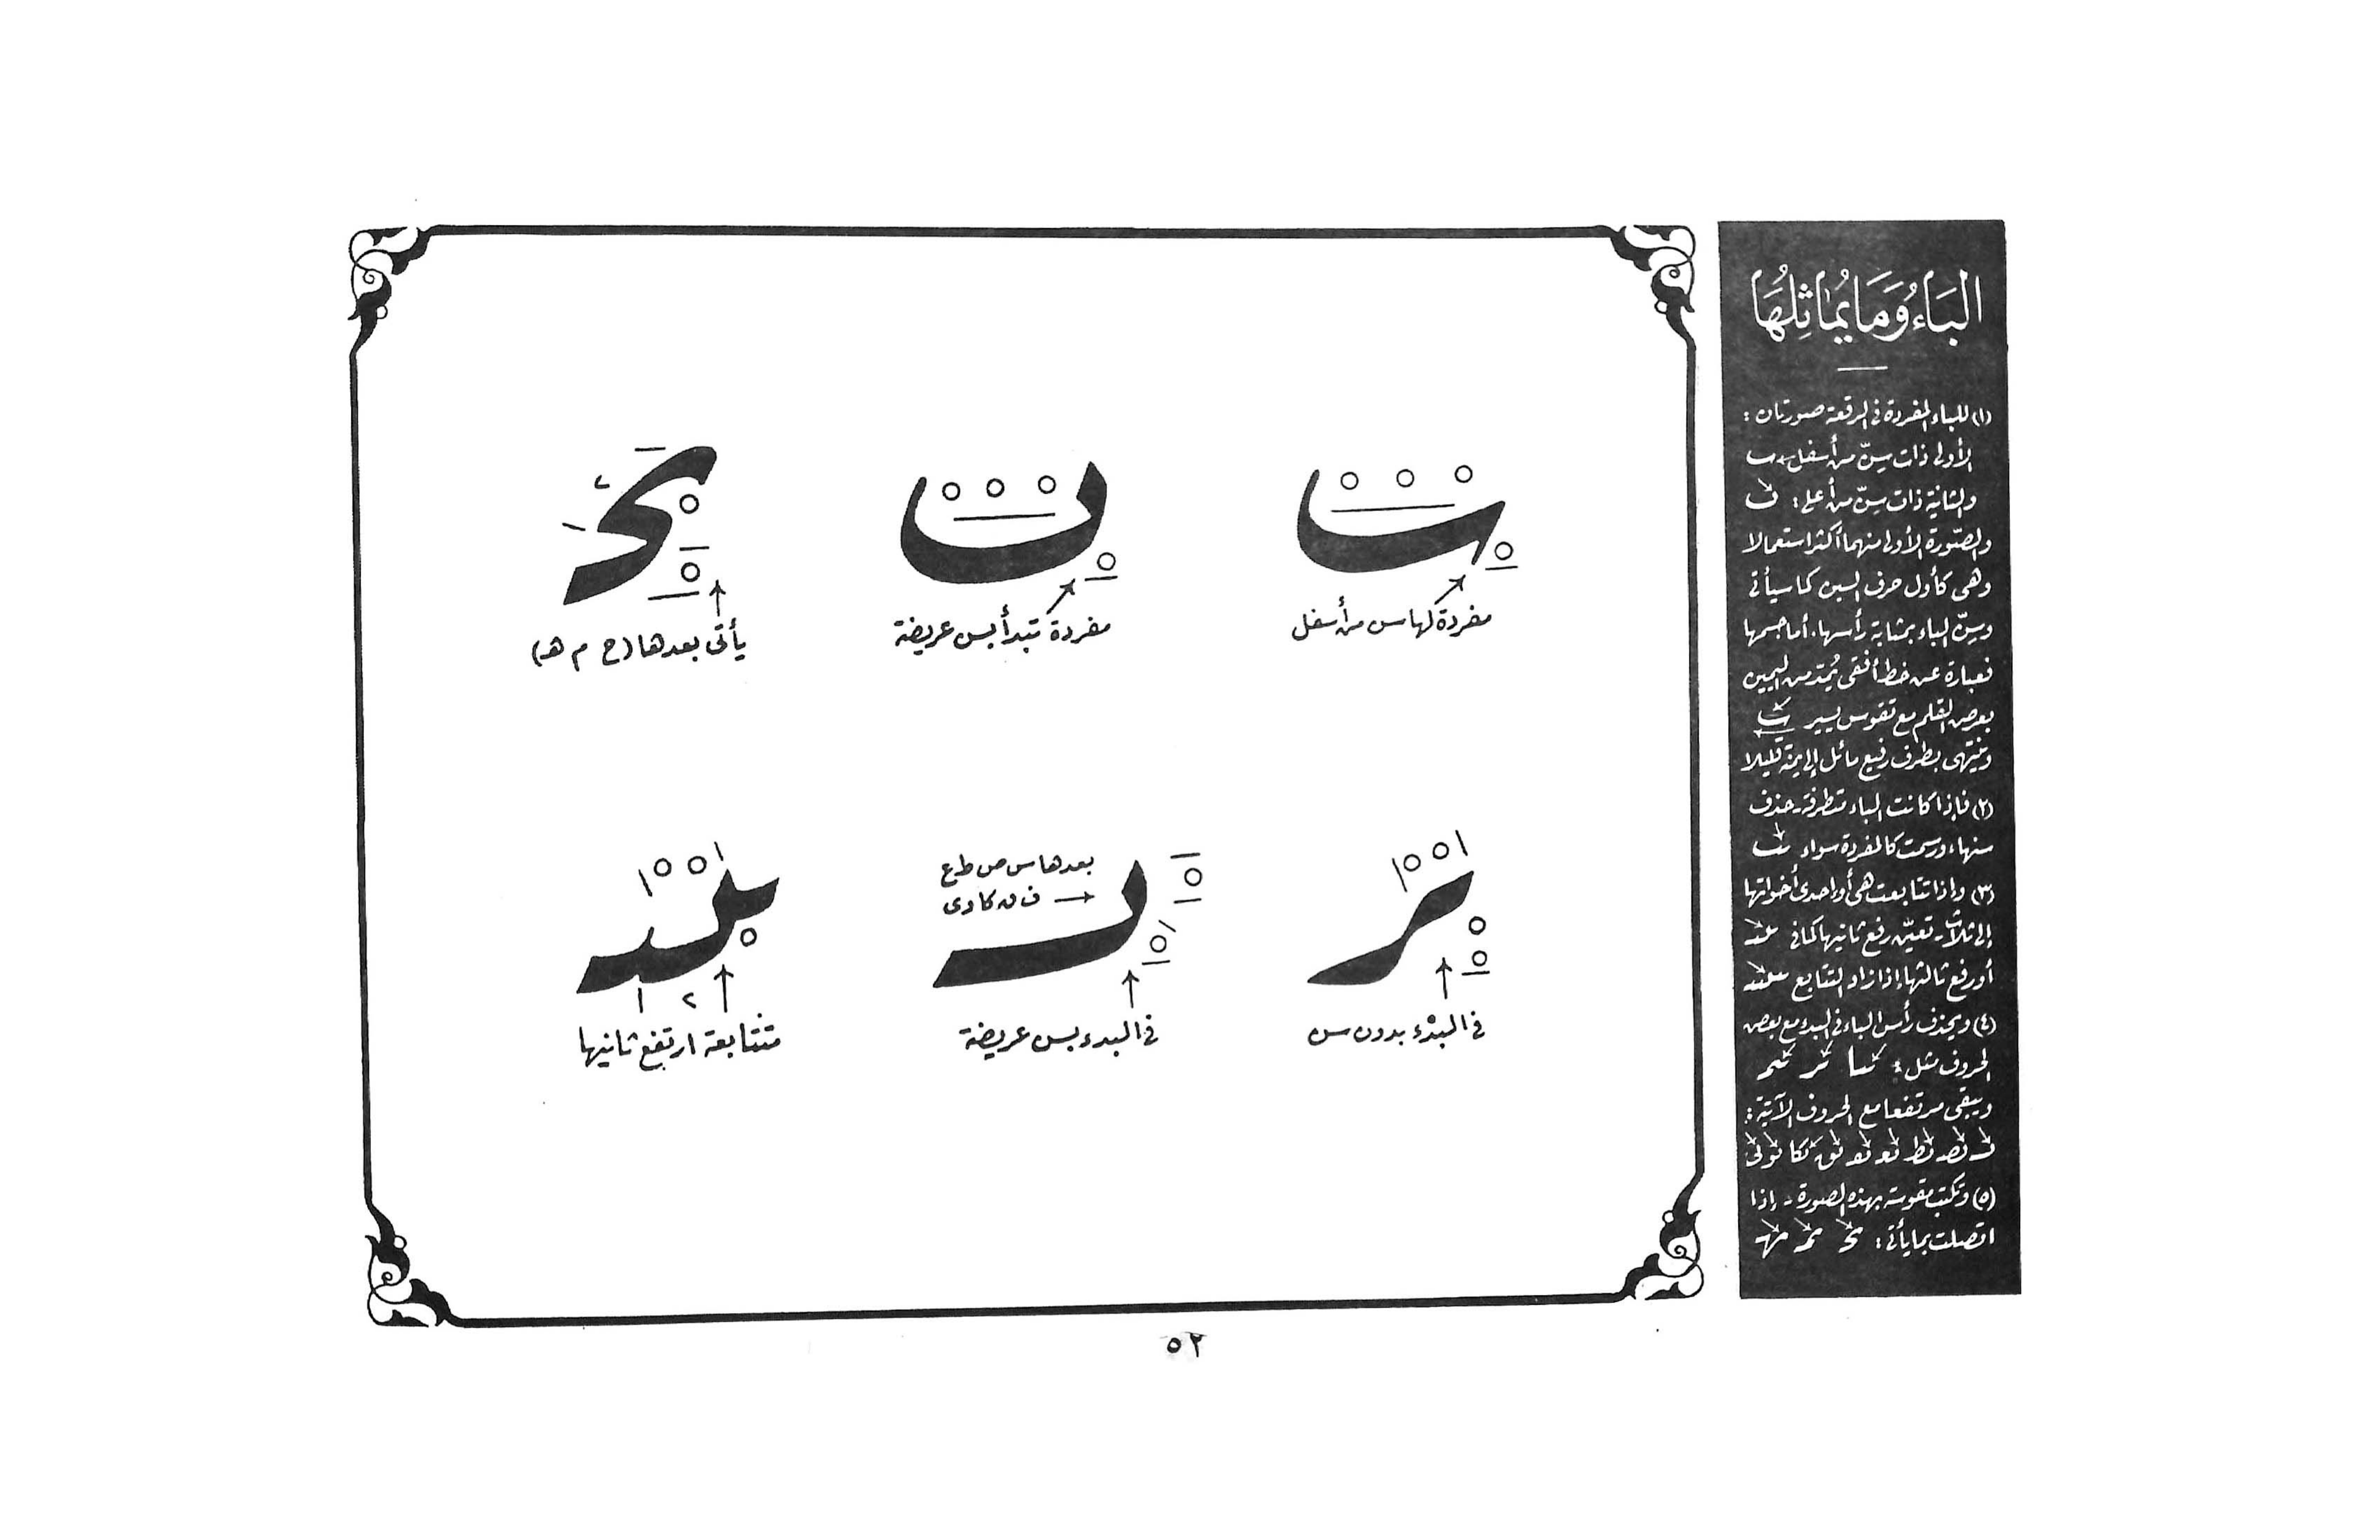 البَاءُ وَمَا يُمَاثِلُهَا
(١) للباء المفردة في الرقعة صورتان :
الأولى ذات سِنّ من أسفل
والثانية ذات سِنّ من أعلى :
والصّورة الأولى منهما أكثر استعمالا
وهي كأول حرف السين كما سيأتي
وسِنّ الباء بمثابة رأسها . أما جسمها
فعبارة عن خط أفقي يُمتد من اليمين
بعرض القلم مع تقوس يسير
وينتهي بطرف رفيع مائل إلى يمنة قليلا
(٢) فإذا كانت الباء متطرفة - حذف
سنها ، ورسمت كالمفردة سواء
(٣) وإذا تتابعت هي أو إحدى أخواتها
إلى ثلاث - تعيّن رفع ثانيها كما في
أو رفع ثالثها إذا زاد التتابع
(٤) ويحذف رأس الباء في البدء مع بعض
الحروف مثل :
ويبقى مرتفعا مع الحروف الآتية :
(٥) وتكتب مقوسة بهذه الصورة - إذا
اتصلت بما يأتي :
مفردة لها سن من أسفل
مفردة تبدأ بسن عريضة
يأتي بعدها (ح م هـ)
في البدْء بدون سن
بعدها س ص ط ع
ف ق ك ا و ى
في البدء بسن عريضة
متتابعة ارتفع ثانيها
٥٢